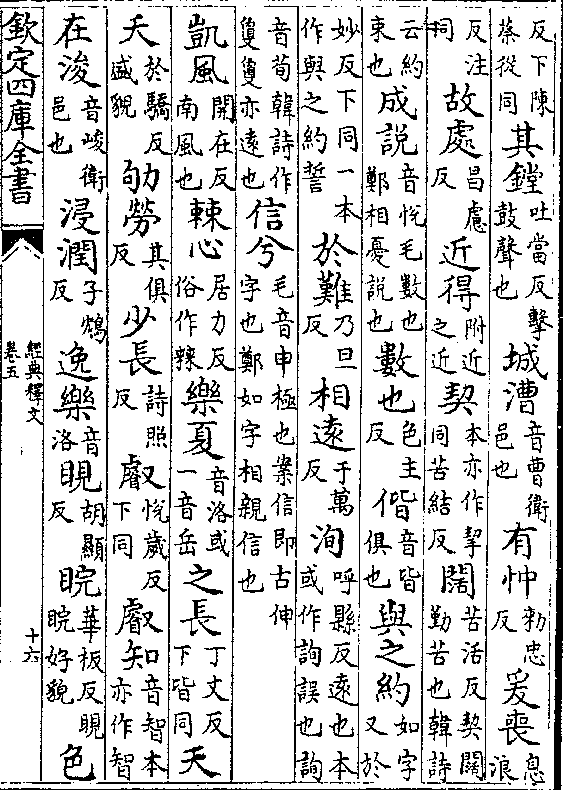 反下陳蔡從同其鏜吐當反擊鼓聲也城漕音曹衛邑也有忡勑忠反爰喪息浪
反注同故處昌慮反近得附近之近契本亦作挈同苦結反闊苦活反契闊勤苦也韓詩
云約束也成說音悅毛數也鄭相愛說也數也色主反偕音皆俱也與之約如字又於
妙反下同一本作與之約誓於難乃旦反相遠于萬反洵呼縣反遠也本或作詢誤也詢
音荀韓詩作敻敻亦遠也信兮毛音申極也案信即古伸字也鄭如字相親信也
凱風開在反南風也棘心居力反俗作𣗥樂夏音洛或一音岳之長丁丈反下皆同天
夭於驕反盛貌劬勞其俱反少長詩照反叡悅歲反下同叡知音智本亦作智
在浚音峻衛邑也浸潤子鴆反逸樂音洛睍胡顯反睆華板反睍睆好貌色
欽定四庫全書
經典釋文
卷五
十六